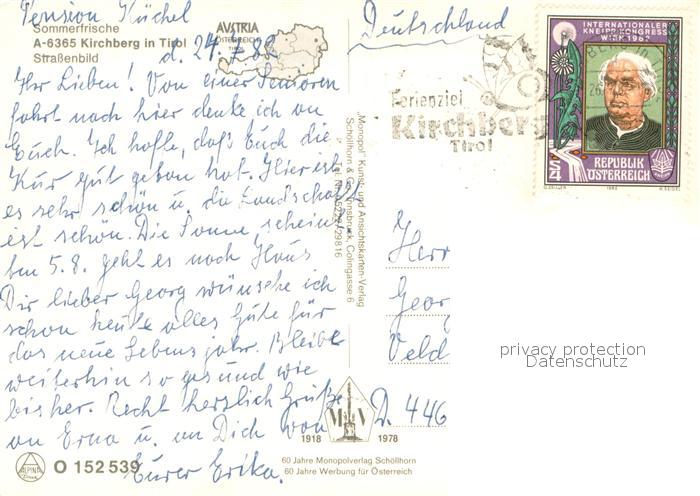 Pension Küchel
Sommerfrische
A-6365 Kirchberg in Tirol
Straßenbild
AVSTRIA
ÖSTERREICH
TIROL
d. 24.7.82
Ihr Lieben! Von einer Senioren
fahrt nach hier denke ich an
Euch. Ich hoffe, daß Euch die
Kur gut getan hat. Hier ist
es sehr schön u. die Landschaft
ist schön. Die Sonne scheint
Am 5.8. geht es nach Haus
Dir lieber Georg wünsche ich
schon heute alles Gute für
das neue Lebensjahr. Bleibe
weiterhin so gesund wie
bisher. Recht herzlich Grüße
an Erna u. an Dich von
Eurer Erika.
ALPINA
O 152 539
„Monopol" Kunst- und Ansichtskarten-Verlag
Schöllhorn & Innsbruck, Colingasse 6
29816
1918 MSV 1978
60 Jahre Monopolverlag Schöllhorn
60 Jahre Werbung für Österreich
Deutschland
Ferienziel
Kirchberg
Tirol
INTERNATIONALER
KNEIPP-KONGRESS
WIEN 1982
S4
REPUBLIK
ÖSTERREICH
O. ZEILLER 1982 W. SEIDEL
Herr
Georg
Veld
D. 446
privacy protection
Datenschutz